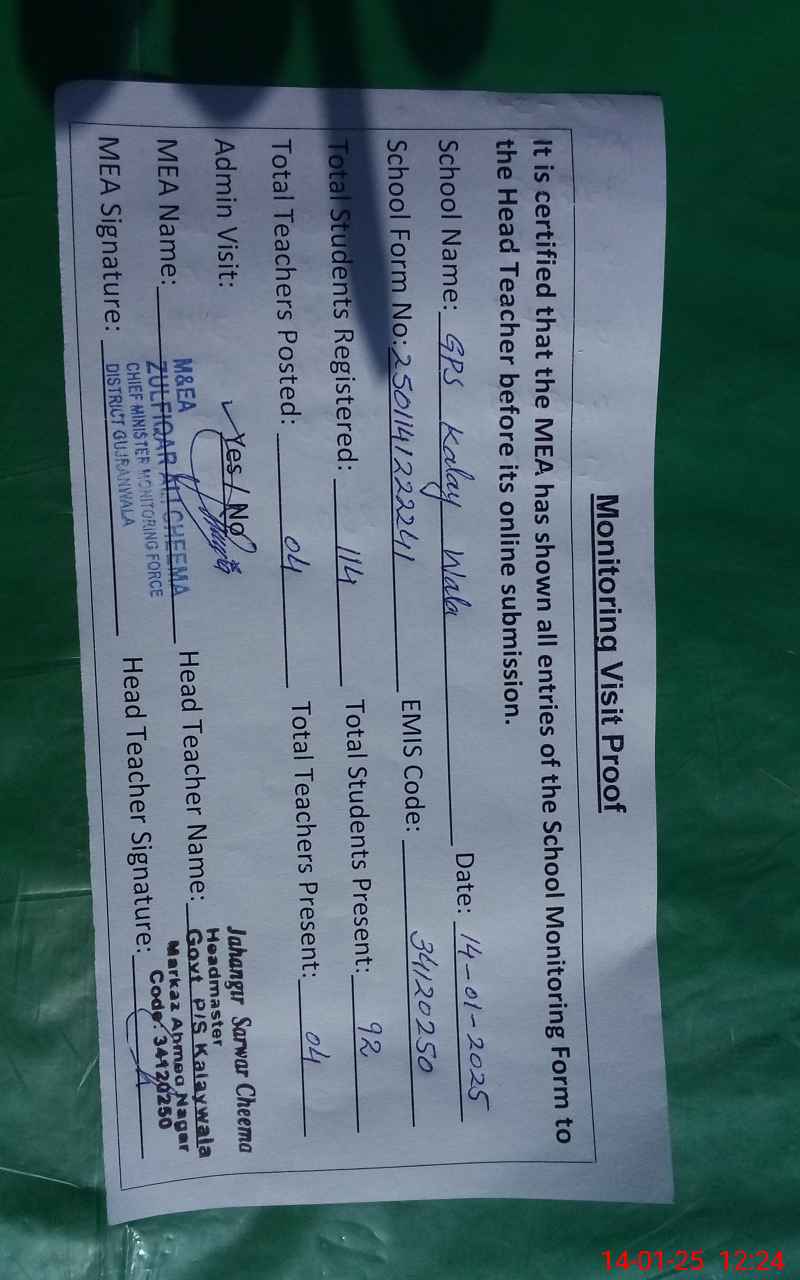 Monitoring Visit Proof
It is certified that the MEA has shown all entries of the School Monitoring Form to
the Head Teacher before its online submission.
School Name: GPS Kalay Wala Date: 14-01-2025
School Form No: 250114122241 EMIS Code: 34120250
Total Students Registered: 114 Total Students Present: 92
Total Teachers Posted: 04 Total Teachers Present: 04
Admin Visit: ✓ Yes / No
MEA Name: Head Teacher Name:
MEA Signature: Head Teacher Signature:
M&EA
ZULFIQAR ALI CHEEMA
CHIEF MINISTER MONITORING FORCE
DISTRICT GUJRANWALA
Jahangir Sarwar Cheema
Headmaster
Govt P/S Kalaywala
Markaz Ahmed Nagar
Code: 34120250
14-01-25 12:24